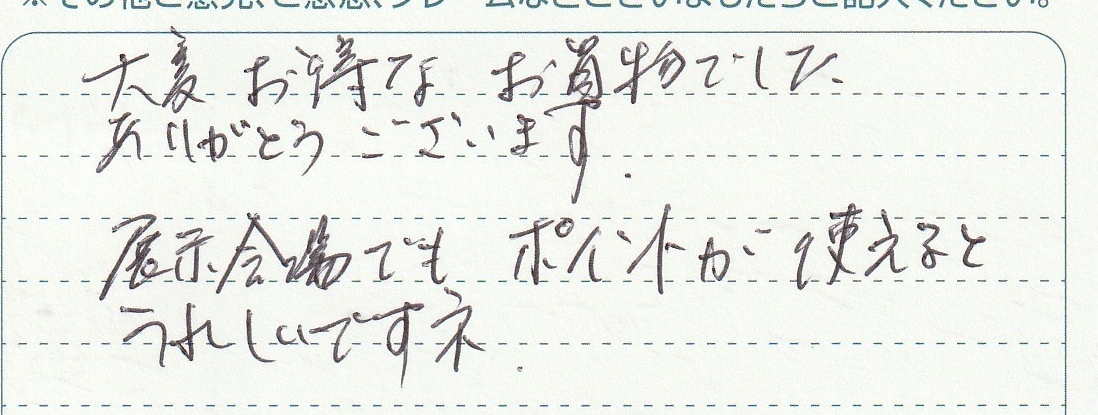 ※その他ご意見、ご感想、クレームなどございましたらご記入ください。
大変お得な お買物でした.
ありがとう ございます.
展示会場でも ポイントが 使えると
うれしいですネ.